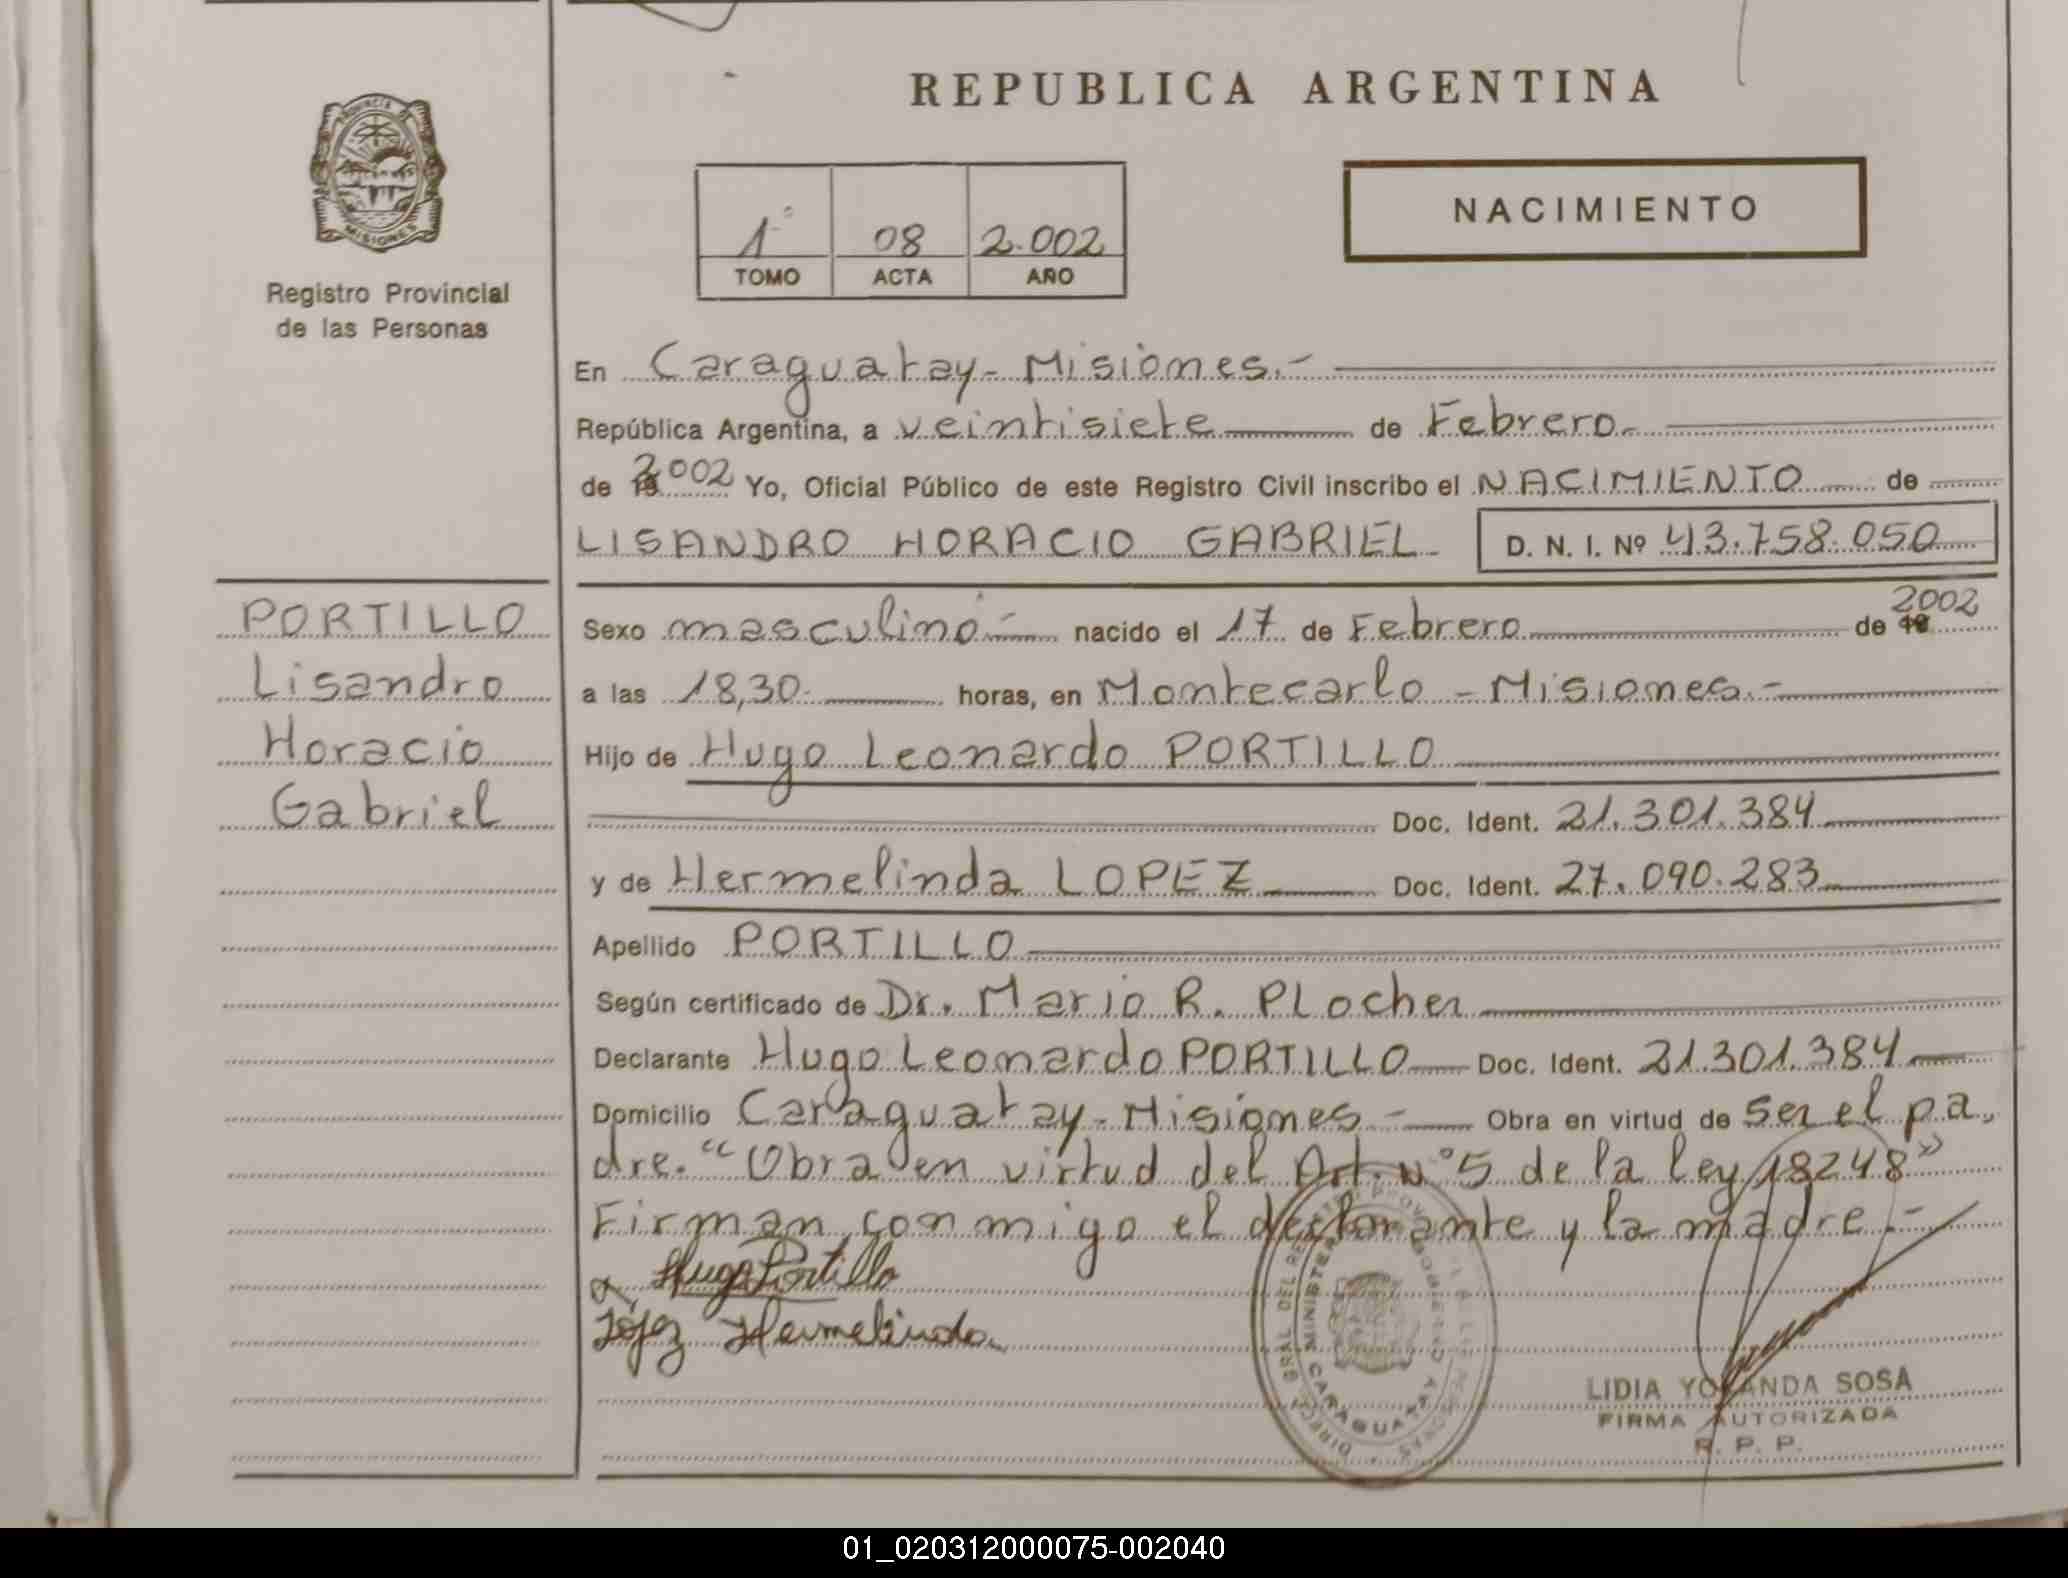 REPUBLICA ARGENTINA
PROVINCIA DE
MISIONES
Registro Provincial
de las Personas
1° 08 2.002
TOMO ACTA AÑO
NACIMIENTO
En Caraguatay - Misiones.-
República Argentina, a veintisiete de Febrero.-
de 2002 Yo, Oficial Público de este Registro Civil inscribo el NACIMIENTO de
LISANDRO HORACIO GABRIEL- D. N. I. Nº 43.758.050
PORTILLO
Lisandro
Horacio
Gabriel
Sexo masculino.- nacido el 17 de Febrero de 2002
a las 18,30.- horas, en Montecarlo - Misiones.-
Hijo de Hugo Leonardo PORTILLO
Doc. Ident. 21.301.384
y de Hermelinda LOPEZ Doc. Ident. 27.090.283
Apellido PORTILLO
Según certificado de Dr. Mario R. PLocher
Declarante Hugo Leonardo PORTILLO Doc. Ident. 21.301.384
Domicilio Caraguatay - Misiones - Obra en virtud de ser el pa-
dre. "Obra en virtud del Art. n°5 de la ley 18248"
Firman conmigo el declarante y la madre.-
Hugo Portillo
López Hermelinda
MINISTERIO GOBIERNO
CARAGUATAY
LIDIA YOLANDA SOSA
FIRMA AUTORIZADA
R. P. P.
01_020312000075-002040